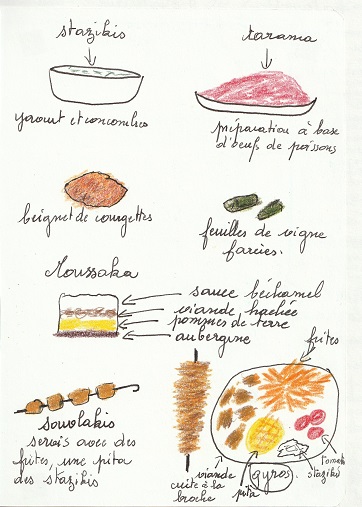 stazikis
tarama
yaourt et concombres
préparation à base
d'oeufs de poissons
beignet de courgettes
feuilles de vigne
farcies.
Moussaka
sauce béchamel
viande hachée
pommes de terre
aubergine
frites
souvlakis
servis avec des
frites, une pita
des stazikis
viande
cuite à la
broche
pita
gyros.
stazikis
tomate